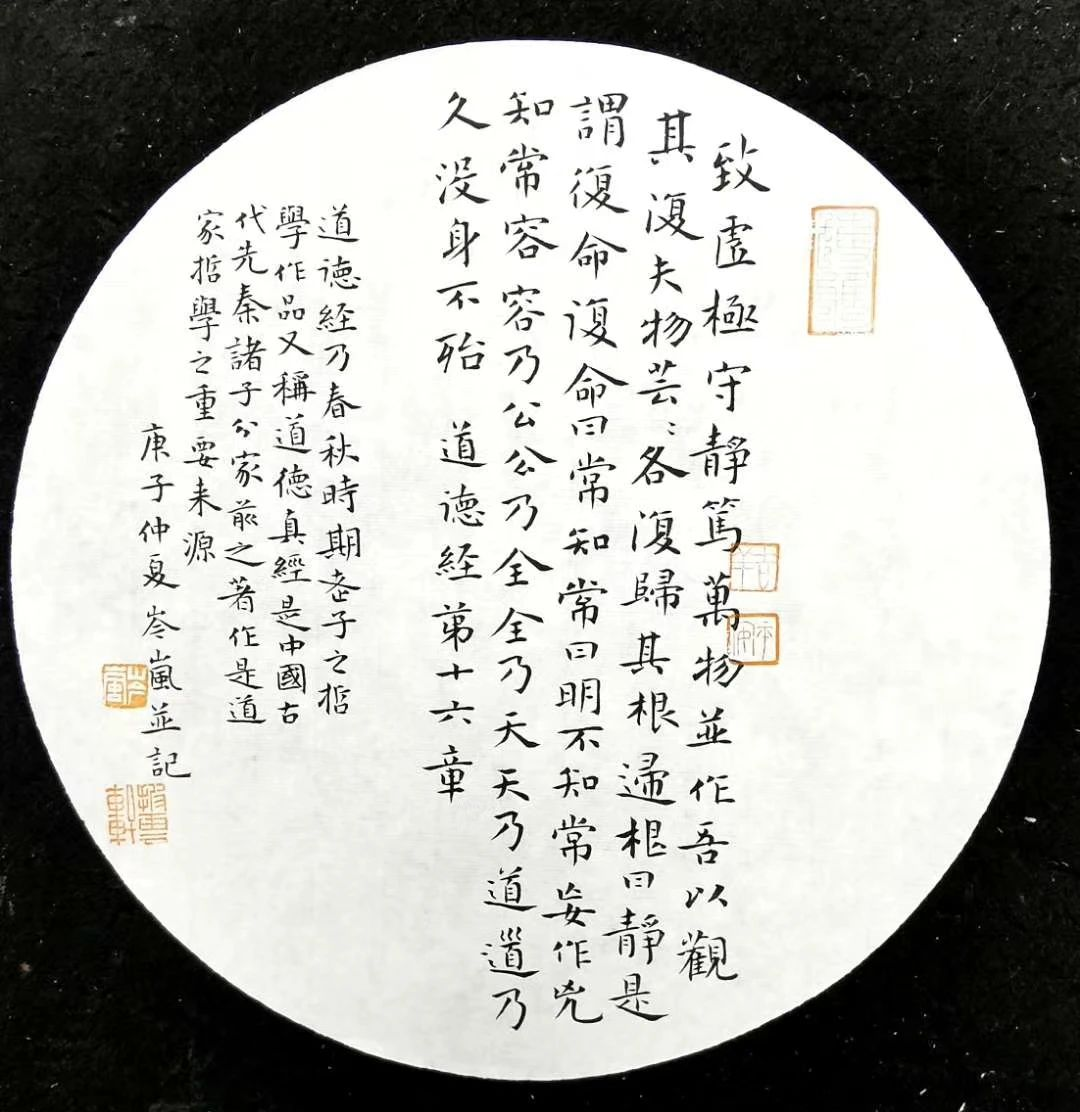 致虛極守靜篤萬物並作吾以觀
其復夫物芸〻各復歸其根歸根曰靜是
謂復命復命曰常知常曰明不知常妄作兇
知常容容乃公公乃全全乃天天乃道道乃
久没身不殆 道德経第十六章
道德経乃春秋時期老子之哲
學作品又稱道德真經是中國古
代先秦諸子分家前之著作是道
家哲學之重要来源
庚子仲夏岑嵐並記
岑嵐